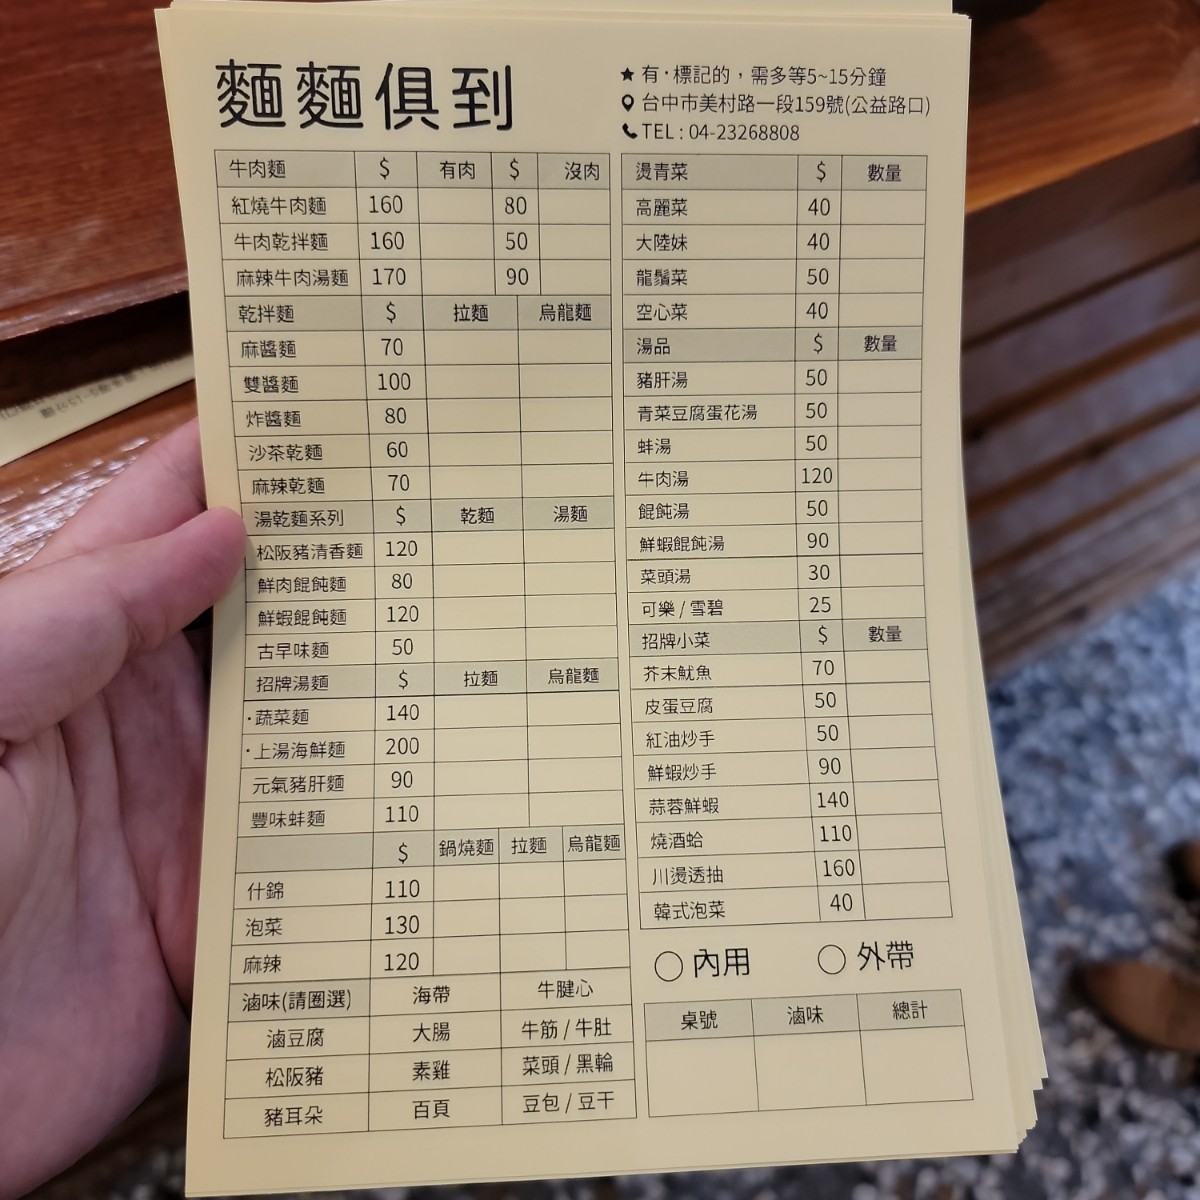 麵麵俱到
★ 有·標記的，需多等5~15分鐘
台中市美村路一段159號(公益路口)
TEL : 04-23268808
牛肉麵 $ 有肉 $ 沒肉
紅燒牛肉麵 160 80
牛肉乾拌麵 160 50
麻辣牛肉湯麵 170 90
乾拌麵 $ 拉麵 烏龍麵
麻醬麵 70
雙醬麵 100
炸醬麵 80
沙茶乾麵 60
麻辣乾麵 70
湯乾麵系列 $ 乾麵 湯麵
松阪豬清香麵 120
鮮肉餛飩麵 80
鮮蝦餛飩麵 120
古早味麵 50
招牌湯麵 $ 拉麵 烏龍麵
·蔬菜麵 140
·上湯海鮮麵 200
元氣豬肝麵 90
豐味蚌麵 110
$ 鍋燒麵 拉麵 烏龍麵
什錦 110
泡菜 130
麻辣 120
滷味(請圈選) 海帶 牛腱心
滷豆腐 大腸 牛筋 / 牛肚
松阪豬 素雞 菜頭 / 黑輪
豬耳朵 百頁 豆包 / 豆干
燙青菜 $ 數量
高麗菜 40
大陸妹 40
龍鬚菜 50
空心菜 40
湯品 $ 數量
豬肝湯 50
青菜豆腐蛋花湯 50
蚌湯 50
牛肉湯 120
餛飩湯 50
鮮蝦餛飩湯 90
菜頭湯 30
可樂 / 雪碧 25
招牌小菜 $ 數量
芥末魷魚 70
皮蛋豆腐 50
紅油炒手 50
鮮蝦炒手 90
蒜蓉鮮蝦 140
燒酒蛤 110
川燙透抽 160
韓式泡菜 40
○ 內用 ○ 外帶
桌號 滷味 總計